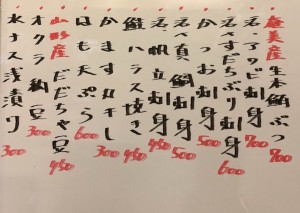 奄美産 生本鮪ぶつ 700
アワビ刺身 700
すだちぶり刺身 600
かつお刺身 500
真鯛刺身 500
帆立刺身 450
鮭ハラス焼き 450
かます丸干し 300
はも天ぷら 600
山形産 だだちゃ豆 450
オクラ納豆 300
水ナス浅漬り 300